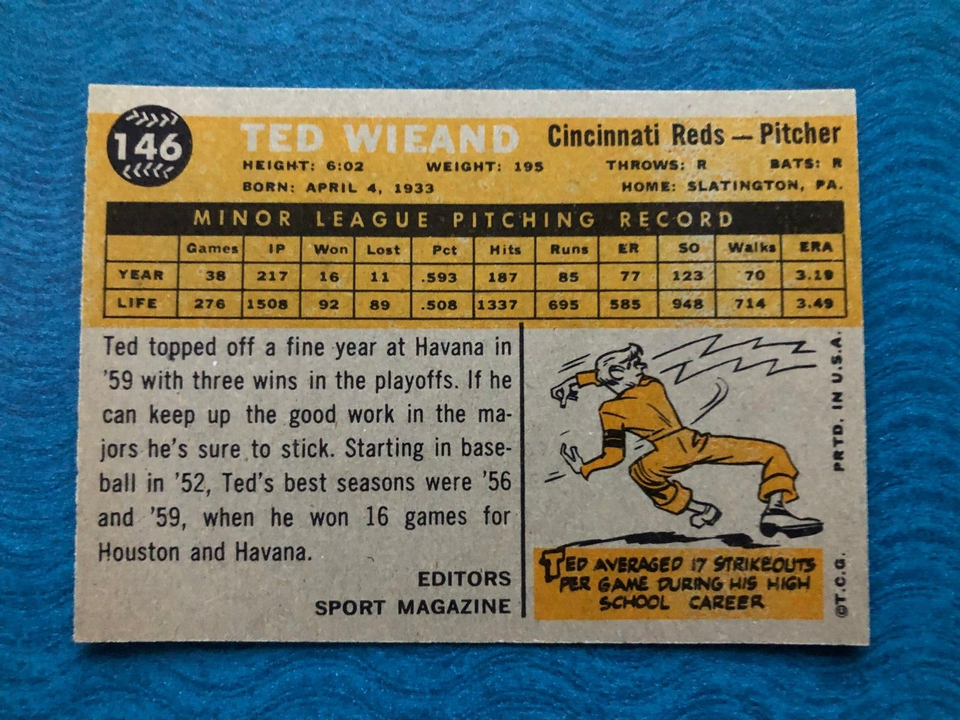 146
TED WIEAND Cincinnati Reds — Pitcher
HEIGHT: 6:02 WEIGHT: 195 THROWS: R BATS: R
BORN: APRIL 4, 1933 HOME: SLATINGTON, PA.
MINOR LEAGUE PITCHING RECORD
Games IP Won Lost Pct Hits Runs ER SO Walks ERA
YEAR 38 217 16 11 .593 187 85 77 123 70 3.19
LIFE 276 1508 92 89 .508 1337 695 585 948 714 3.49
Ted topped off a fine year at Havana in
'59 with three wins in the playoffs. If he
can keep up the good work in the ma-
jors he's sure to stick. Starting in base-
ball in '52, Ted's best seasons were '56
and '59, when he won 16 games for
Houston and Havana.
EDITORS
SPORT MAGAZINE
TED AVERAGED 17 STRIKEOUTS
PER GAME DURING HIS HIGH
SCHOOL CAREER
©T.C.G. PRTD. IN U.S.A.